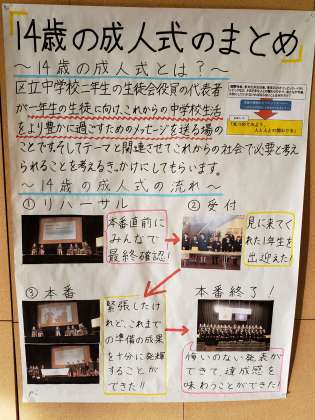 14歳の成人式のまとめ
～14歳の成人式とは？～
区立中学校二年生の生徒会役員の代表者
が一年生の生徒に向け、これからの中学校生活
をより豊かに過ごすためのメッセージを送る場の
ことです。そしてテーマと関連させてこれからの社会で必要と考え
られることを考えるきっかけにしてもらいます。
～14歳の成人式の流れ～
①リハーサル
本番直前に
みんなで
最終確認！
②受付
見に来てく
れた1年生を
出迎えた！
③本番
緊張したけ
れど、これまで
の準備の成果
を十分に発揮
することが
できた！！
本番終了！
悔いのない発表が
できて、達成感を
味わうことができた！